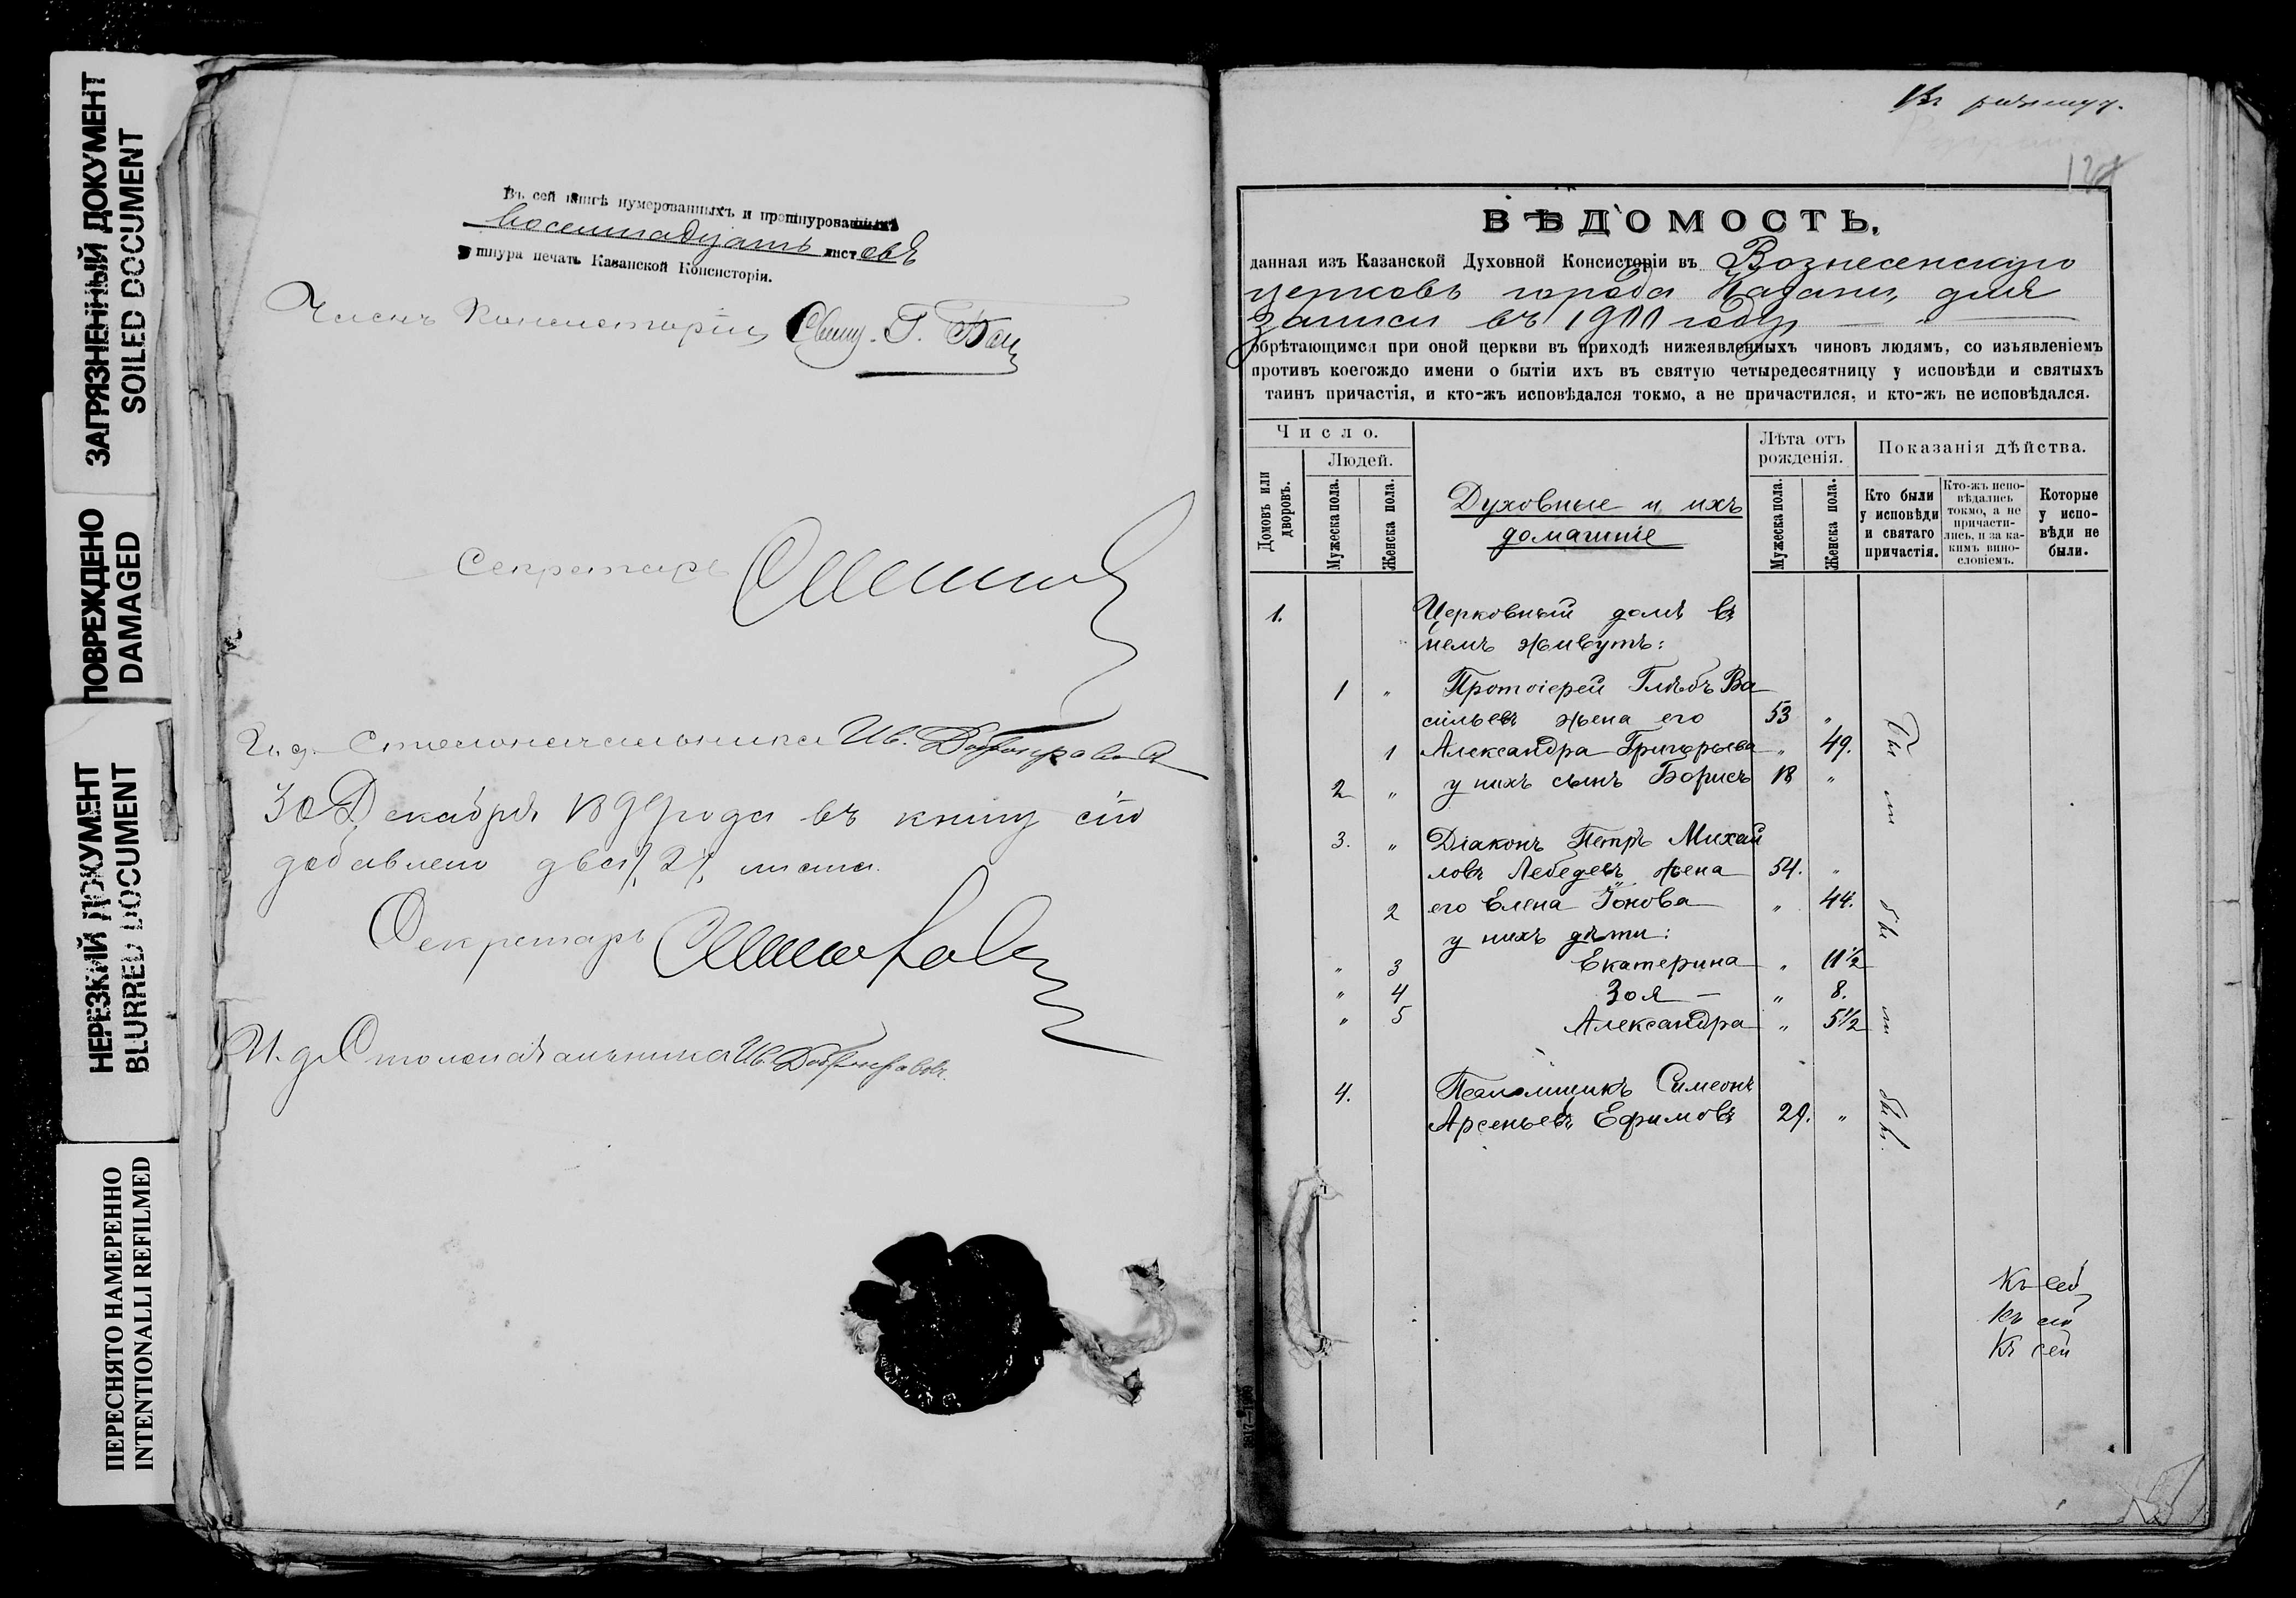 ЗАГРЯЗНЕННЫЙ ДОКУМЕНТ
SOILED DOCUMENT
ПОВРЕЖДЕНО
DAMAGED
НЕРЕЗКИЙ ДОКУМЕНТ
BLURRED DOCUMENT
ПЕРЕСНЯТО НАМЕРЕННО
INTENTIONALLI REFILMED
Въ сей книгѣ нумерованныхъ и прошнурованныхъ
восемнадцать листовъ
шнура печать Казанской Консисторіи.
Членъ Консисторіи Свящ. Г.
Секретарь
И. д. Столоначальника Ив. Добронравовъ
30 Декабря 1899 года въ книгу сію
добавлено два /2/ листа.
Секретарь
И. д. Столоначальника Ив. Добронравовъ.
ВѢДОМОСТЬ,
данная изъ Казанской Духовной Консисторіи въ Вознесенскую
церковь города Казани, для
записи въ 1900 году
обрѣтающимся при оной церкви въ приходѣ нижеявленныхъ чиновъ людямъ, со изъявленіемъ
противъ коегождо имени о бытіи ихъ въ святую четыредесятницу у исповѣди и святыхъ
таинъ причастія, и кто-жъ исповѣдался токмо, а не причастился, и кто-жъ не исповѣдался.
Число.
Людей.
Домовъ или дворовъ.
Мужеска пола.
Женска пола.
Духовные и ихъ
домашніе
Лѣта отъ
рожденія.
Мужеска пола.
Женска пола.
Показанія дѣйства.
Кто были
у исповѣди
и святаго
причастія.
Кто-жъ испо-
вѣдались
токмо, а не
причасти-
лись, и за ка-
кимъ вино-
словіемъ.
Которые
у испо-
вѣди не
были.
1. Церковный домъ въ
немъ живутъ:
1 " Протоіерей Глѣбъ Ва
сильевъ жена его 53 "
1 Александра Григорьева " 49.
2 " у нихъ сынъ Борисъ 18 "
3. " Діаконъ Петръ Михай
ловъ Лебедевъ жена 54. "
2 его Елена Іонова " 44.
у нихъ дѣти:
" 3 Екатерина " 11 1/2
" 4 Зоя — " 8.
" 5 Александра " 5 1/2
4. Псаломщикъ Симеонъ
Арсеньевъ Ефимовъ 29. "
Бы
ли
бы
ли
былъ.
Къ сей
Къ сей
Къ сей